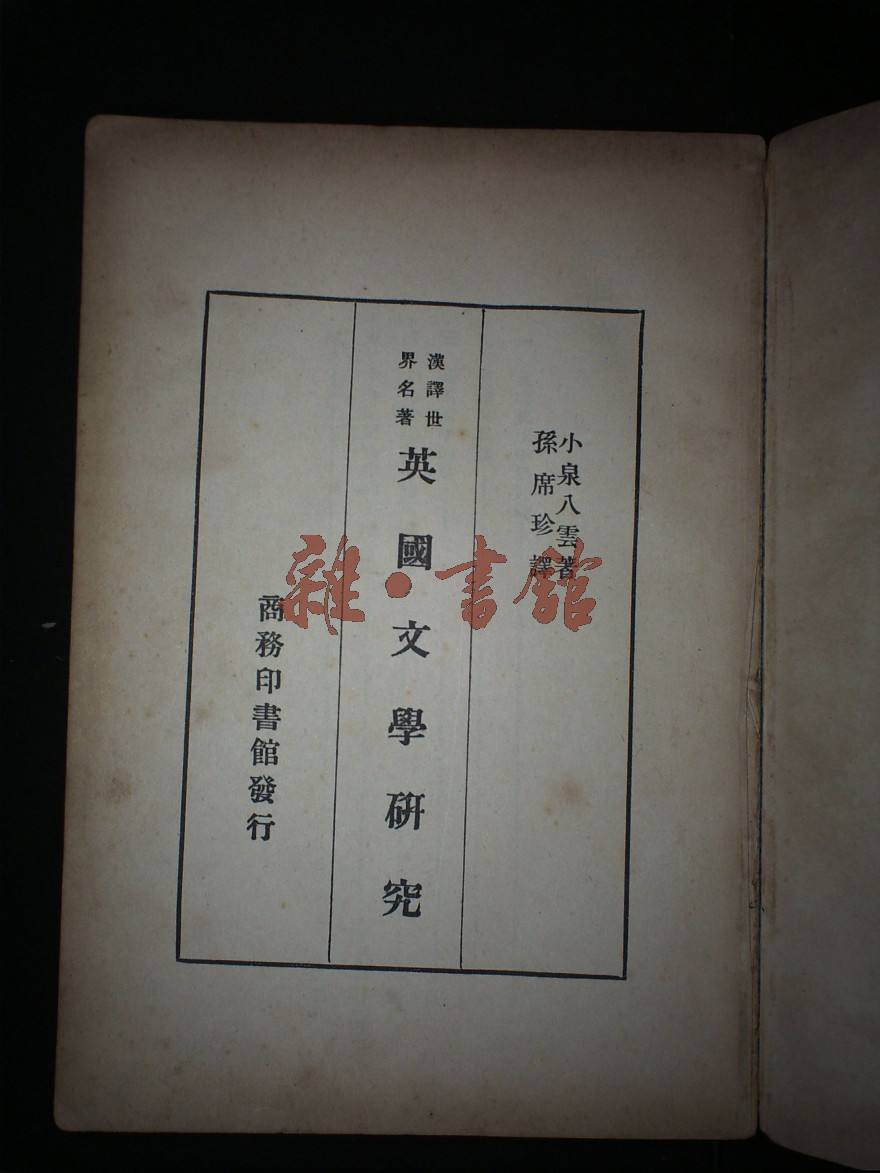 小泉八雲著
孫席珍譯
漢譯世
界名著
英國文學研究
商務印書館發行
雜·書館